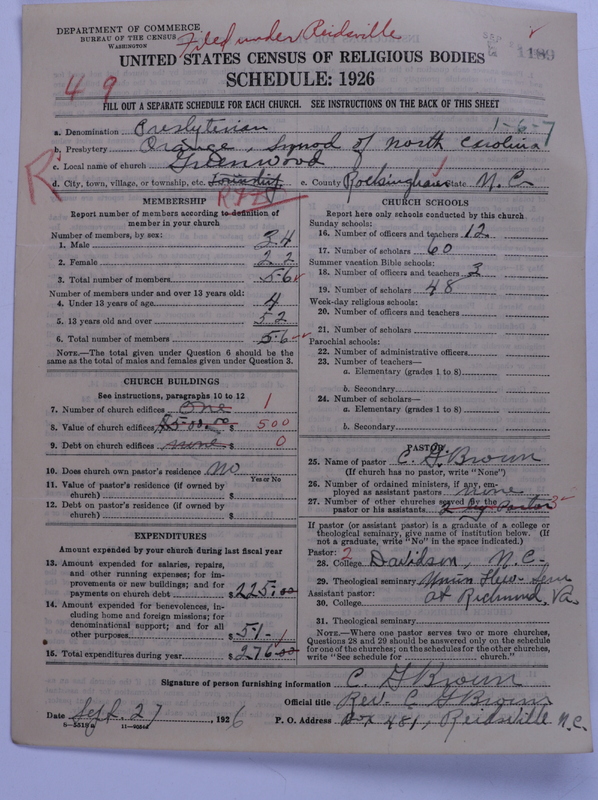 DEPARTMENT OF COMMERCE
BUREAU OF THE CENSUS
WASHINGTON
Filed under Reidsville
1189
UNITED STATES CENSUS OF RELIGIOUS BODIES
4 9
SCHEDULE: 1926
FILL OUT A SEPARATE SCHEDULE FOR EACH CHURCH. SEE INSTRUCTIONS ON THE BACK OF THIS SHEET
1-6-7
a. Denomination Presbyterian
b. Presbytery Orange, Synod of North Carolina
c. Local name of church Greenwood
R
d. City, town, village, or township, etc. Township e. County Rockingham State N.C.
MEMBERSHIP
Report number of members according to definition of
member in your church
Number of members, by sex:
1. Male 34
2. Female 22
3. Total number of members 56
Number of members under and over 13 years old:
4. Under 13 years of age 4
5. 13 years old and over 52
6. Total number of members 56
NOTE.—The total given under Question 6 should be the
same as the total of males and females given under Question 3.
CHURCH BUILDINGS
See instructions, paragraphs 10 to 12
7. Number of church edifices one 1
8. Value of church edifices $500.00 500
9. Debt on church edifices none 0
10. Does church own pastor's residence No
Yes or No
11. Value of pastor's residence (if owned by
church) $
12. Debt on pastor's residence (if owned by
church) $
EXPENDITURES
Amount expended by your church during last fiscal year
13. Amount expended for salaries, repairs,
and other running expenses; for im-
provements or new buildings; and for
payments on church debt $225.00
14. Amount expended for benevolences, in-
cluding home and foreign missions; for
denominational support; and for all
other purposes $51-
15. Total expenditures during year $276.00
CHURCH SCHOOLS
Report here only schools conducted by this church
Sunday schools:
16. Number of officers and teachers 12
17. Number of scholars 60
Summer vacation Bible schools:
18. Number of officers and teachers 3
19. Number of scholars 48
Week-day religious schools:
20. Number of officers and teachers
21. Number of scholars
Parochial schools:
22. Number of administrative officers
23. Number of teachers—
a. Elementary (grades 1 to 8)
b. Secondary
24. Number of scholars—
a. Elementary (grades 1 to 8)
b. Secondary
PASTOR
25. Name of pastor C. G. Brown
(If church has no pastor, write "None")
26. Number of ordained ministers, if any, em-
ployed as assistant pastors None
27. Number of other churches served by the
pastor or his assistants Pastor 3
If pastor (or assistant pastor) is a graduate of a college or
theological seminary, give name of institution below. (If
not a graduate, write "No" in the space indicated.)
Pastor: 2
28. College Davidson, N.C.
29. Theological seminary Union Theo-Sem
Assistant pastor: at Richmond, Va
30. College
31. Theological seminary
NOTE.—Where one pastor serves two or more churches,
Questions 28 and 29 should be answered only on the schedule
for one of the churches; on the schedules for the other churches,
write "See schedule for church."
Signature of person furnishing information C. G Brown
Official title Rev. C G Brown
Date Sept. 27, 1926 P. O. Address Box 481, Reidsville N.C.